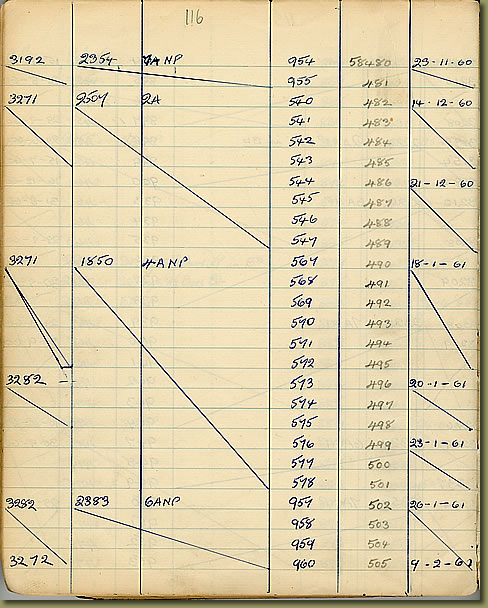 116
3192 2354 7ANP 954 58480 23-11-60
955 481
3271 2507 2A 540 482 14-12-60
541 483
542 484
543 485
544 486 21-12-60
545 487
546 488
547 489
3271 1850 4ANP 567 490 18-1-61
568 491
569 492
570 493
571 494
572 495
3282 573 496 20-1-61
574 497
575 498
576 499 23-1-61
577 500
578 501
3282 2383 6ANP 957 502 26-1-61
958 503
959 504
3272 960 505 9-2-61